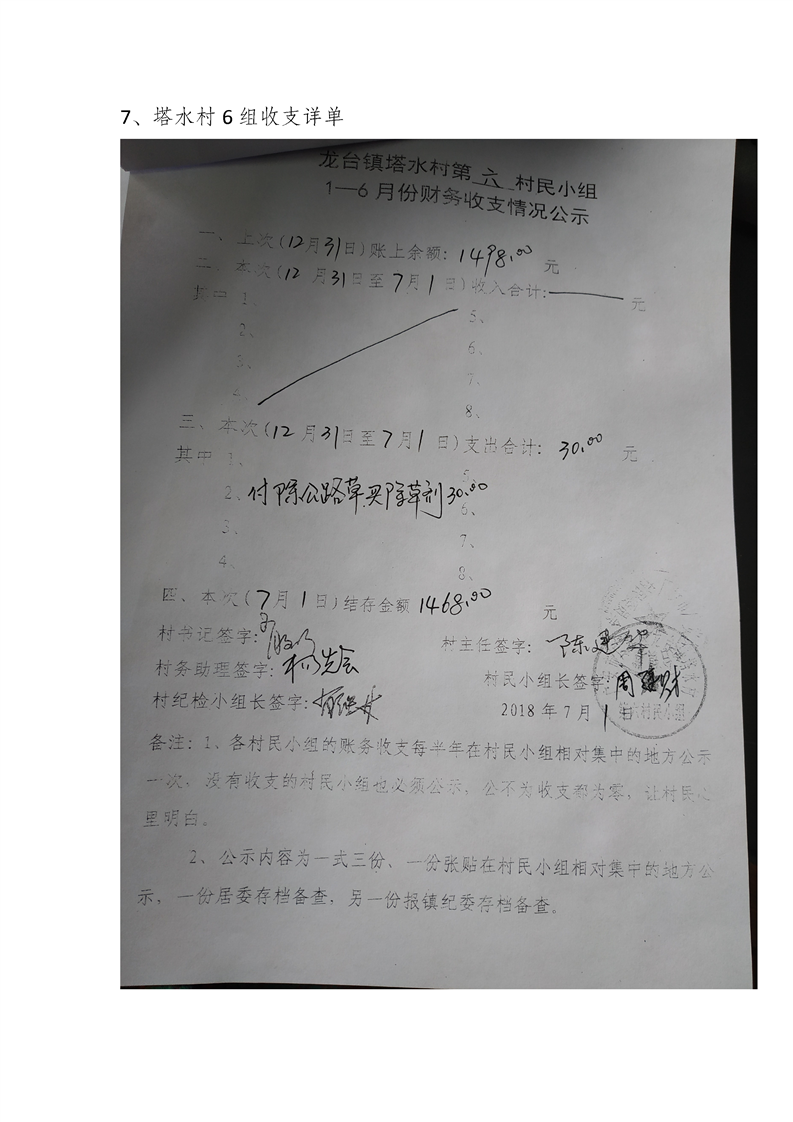 7、塔水村 6 组收支详单
龙台镇塔水村第 六 村民小组
1—6 月份财务收支情况公示
一、上次(12月31日)账上余额: 1498.00 元
二、本次(12 月31日至 7月1 日)收入合计: 元
其中 1、 5、
2、 6、
3、 7、
4、 8、
三、本次(12 月31日至7月1 日)支出合计: 30.00 元
其中 1、 5、
2、付除公路草买除草剂30.00 6、
3、 7、
4、 8、
四、本次(7月1日)结存金额 1468.00 元
村书记签字: 村主任签字: 陈建华
村务助理签字: 村民小组长签字: 周
村纪检小组长签字: 2018 年 7 月 1 日
村民小组
备注: 1、各村民小组的账务收支每半年在村民小组相对集中的地方公示
一次, 没有收支的村民小组也必须公示, 公不为收支都为零, 让村民心
里明白。
2、公示内容为一式三份、一份张贴在村民小组相对集中的地方公
示, 一份居委存档备查, 另一份报镇纪委存档备查。